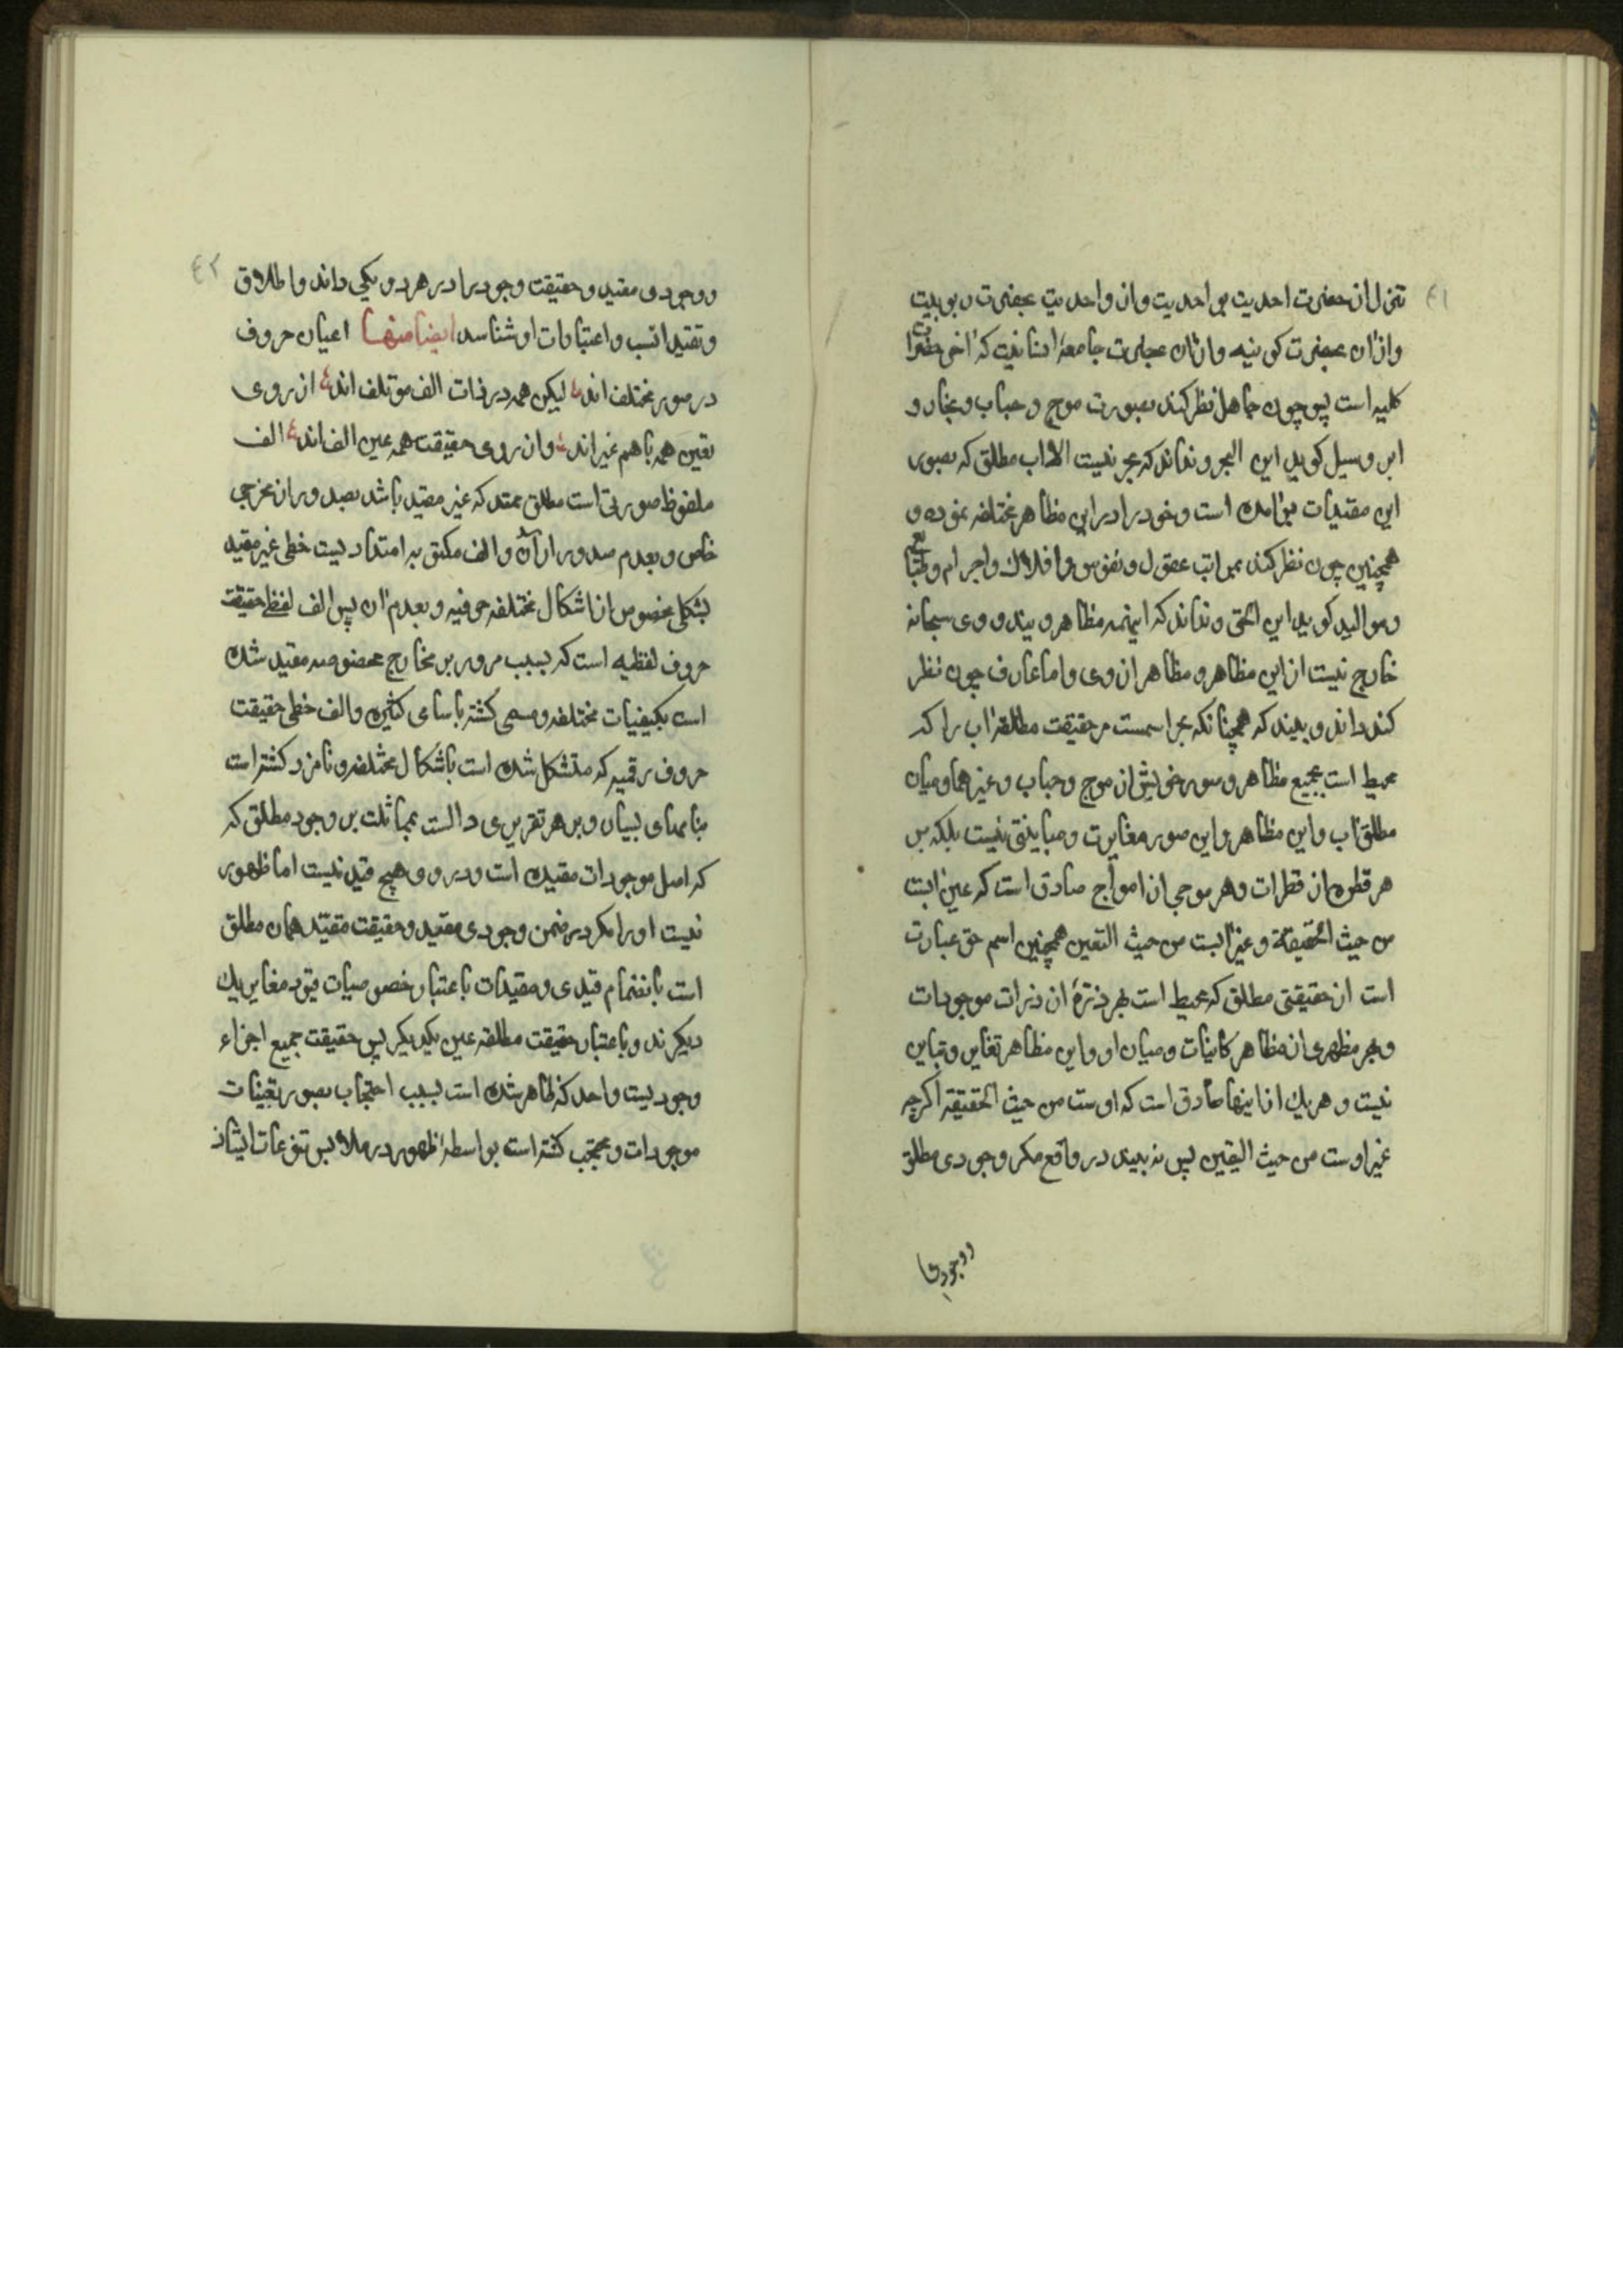 ٤١
تنزل از حضرت احدیت بواحدیت وازن واحدیت بحضرت ربوبیت
وازان بحضرت کونیه وازان بحضرت جامعهٔ انسانیت که اخر حضرات
کلیه است پس چون جاهل نظر کند بصورت موج و حباب و بخار و
ابر و سیل کوید این البحر و نداند که بحر نیست الا اب مطلق که بصور
این مقیدات برامده است و خود را در این مظاهر مختلفه نموده و
همچنین چون نظر کند بمراتب عقول و نفوس و افلاک و اجرام و طبایع
و موالید کوید این الحق و نداند که اینهمه مظاهر ویند و وی سبحانه
خارج نیست از این مظاهر و مظاهر از وی و اما عارف چون نظر
کند داند و بیند که همچنانکه بحر اسمست مر حقیقت مطلقه اب را که
محیط است بجمیع مظاهر و صور خویش از موج و حباب و غیرهما و میان
مطلق اب و این مظاهر و این صور مغایرت و مباینتی نیست بلکه بر
هر قطره از قطرات و هر موجی از امواج صادق است که عین ابست
من حیث الحقیقة و غیر ابست من حیث التعین همچنین اسم حق عبارت
است از حقیقتی مطلق که محیط است بهر ذرهٔ از ذرات موجودات
و بهر مظهری از مظاهر کاینات و میان او و این مظاهر تغایر و تباین
نیست و هر یک از اینها صادق است که اوست من حیث الحقیقة اکرچه
غیر اوست من حیث الیقین پس نه بیند در واقع مکر وجودی مطلق
ووجودی
٤٢
ووجودی مقید و حقیقت وجود را در هر دو یکی داند و اطلاق
و تقید انسب و اعتبارات او شناسد ایضا منها اعیان حروف
در صور مختلف اند لیکن همه در ذات الف موتلف اند از روی
تعین همه باهم غیر اند وازن روی حقیقت همه عین الف اند الف
ملفوظ صورتی است مطلق ممتد که غیر مقید باشد بصدور از مخرجی
خاص و بعدم صدور از ان و الف مکتوبه امتدادیست خطی غیر مقید
بشکلی مخصوص از اشکال مختلفه حرفیه و بعدم ان پس الف لفظی حقیقت
حروف لفظیه است که بسبب مرور بر مخارج مخصوصه مقید شده
است بکیفیات مختلفه و مسمی کشته باسامی کثیره و الف خطی حقیقت
حروف رقمیه که متشکل شده است باشکال مختلفه و نامزد کشته است
بنامهای بسیار و بر هر تقریری دالست بمماثلت بر وجود مطلق که
که اصل موجودات مقیده است و در وو هیچ قید نیست اما ظهور
نیست او را مکر در ضمن وجودی مقید و حقیقت مقید همان مطلق
است بانضمام قیدی و مقیدات باعتبار خصوصیات قیود مغایر یک
دیکرند و باعتبار حقیقت مطلقه عین یکدیکر پس حقیقت جمیع اجزاء
وجودیست واحد که ظاهر شده است بسبب احتجاب بصور تعینات
موجودات و محتجب کشته است بواسطه ظهور در ملابس تنوعات ایشان